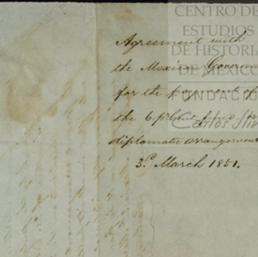 CENTRO DE
ESTUDIOS
DE HISTORIA
DE MEXICO
FUNDACIÓN
Carlos Slim
Agreement with
the Mexican Governm
for the payment of
the 6 p
diplomatic arrangement
3.d March 1851.